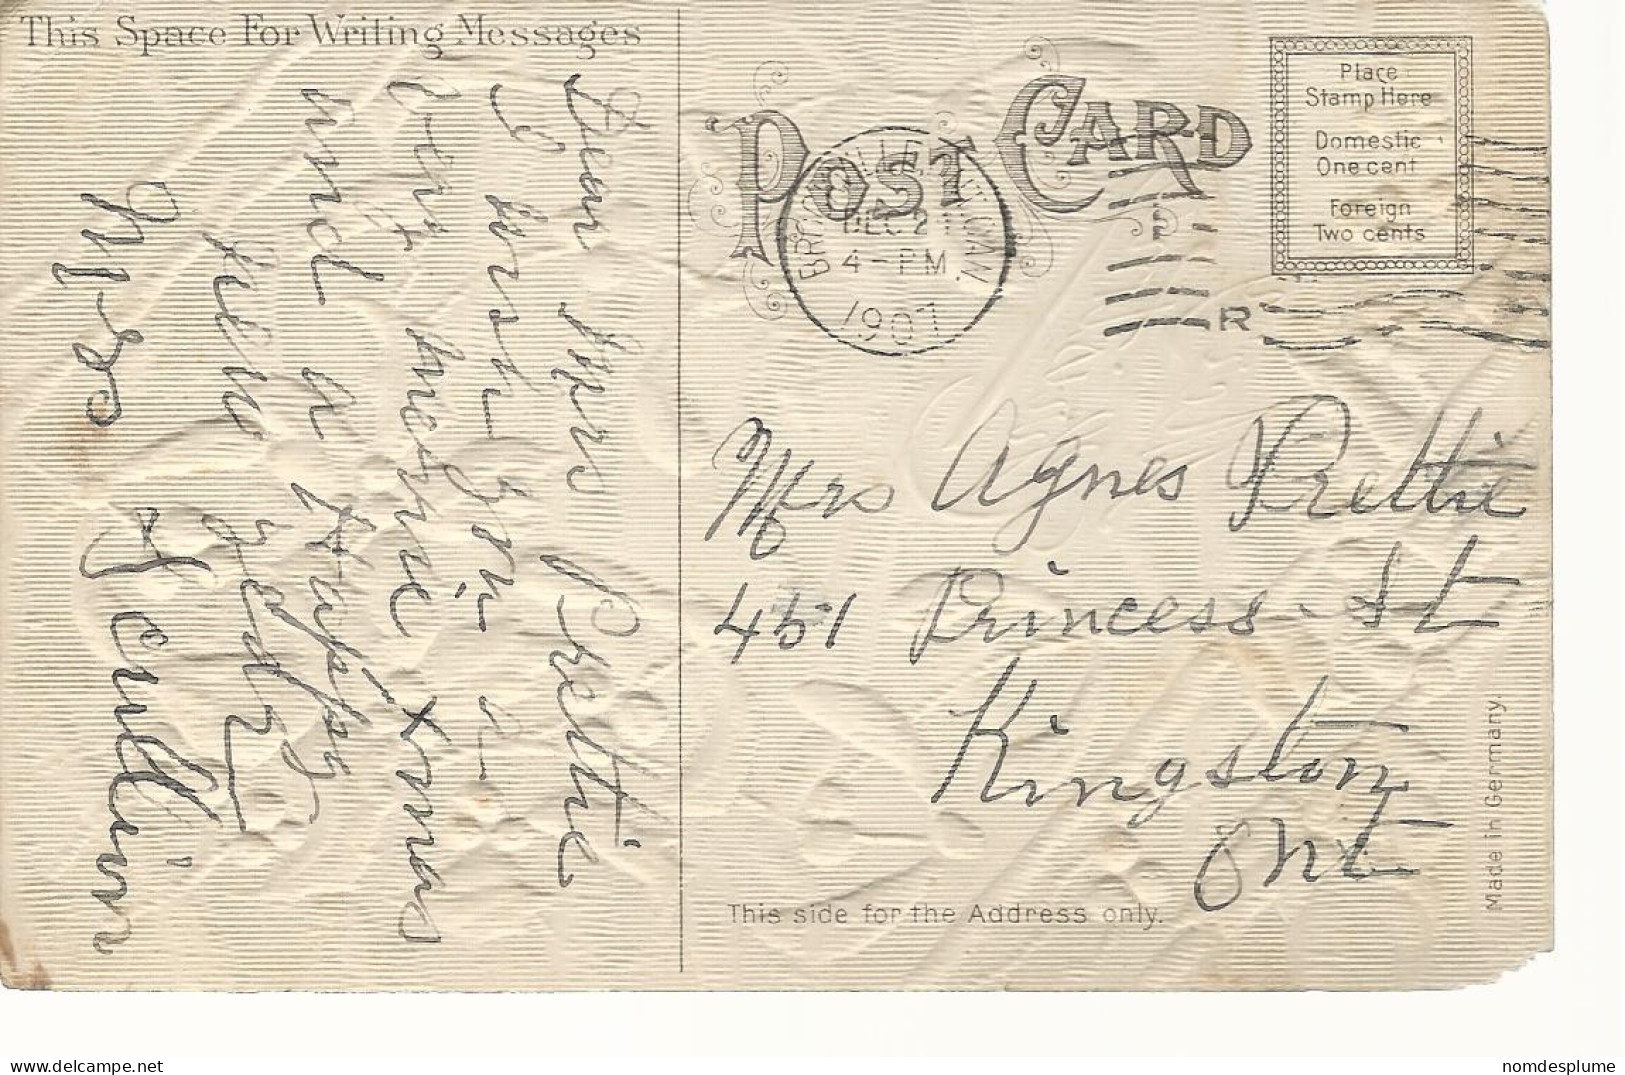 This Space For Writing Messages
Dear Mrs Prettie
I wish you a
very merrie xmas
and a Happy
new year
Mrs J Cullin
POST CARD
BROCKVILLE, CAN.
DEC 2
4 - PM
1907
R
Place
Stamp Here
Domestic
One cent
Foreign
Two cents
Mrs Agnes Prettie
451 Princess St
Kingston
Ont
This side for the Address only.
Made in Germany.
nomdesplume